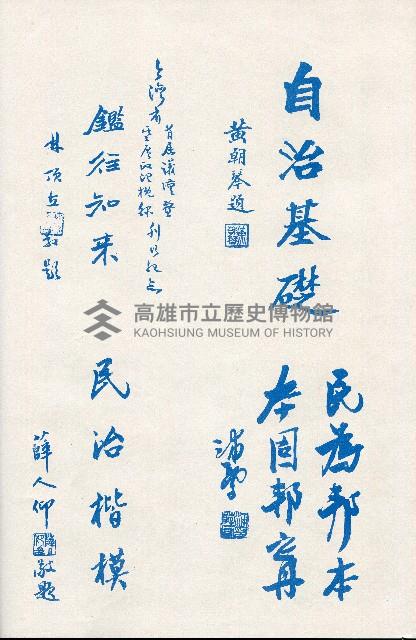 自治基礎
黃朝琴題
台灣省
首屆議壇暨
刊出紀念
鑑往知來
林頂立敬題
民為邦本
本固邦寧
民治楷模
薛人仰敬題
高雄市立歷史博物館
KAOHSIUNG MUSEUM OF HISTORY